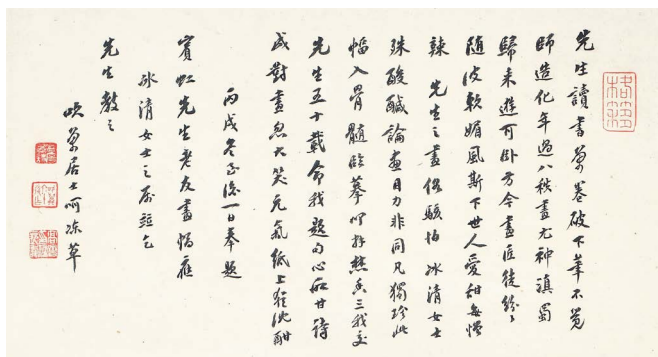 先生讀書萬卷破下筆不覺
師造化年過八秩畫尤神滇蜀
歸來遊可臥方今畫匠徒紛々
随波軟媚風斯下世人愛甜每憎
辣 先生之畫俗駭怕 冰清女士
殊酸鹹論畫目力非同凡獨珍此
幅入骨髓臨摹拜爇香三我交
先生五十載命我題句心所甘詩
成對畫忽大笑元氣紙上猶沈酣
丙戌冬至後一日奉題
賓虹先生老友畫幅應
冰清女士之属並乞
先生教之
吹萬居士呵凍草